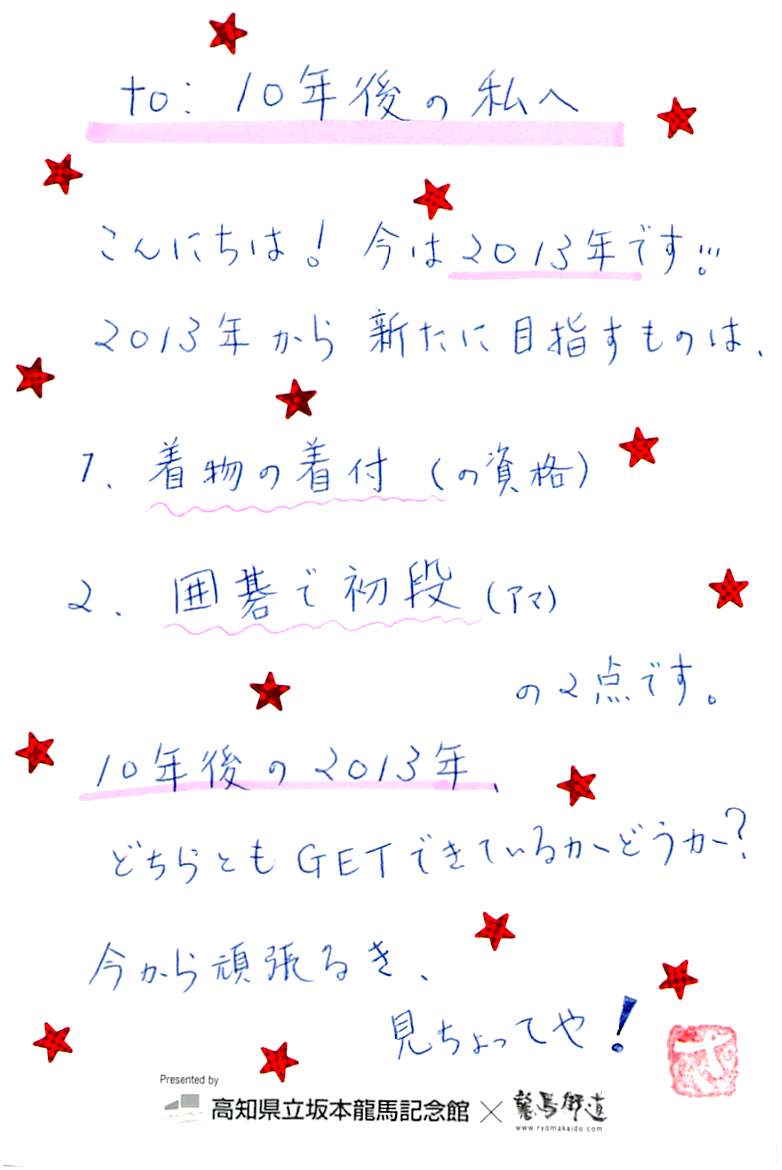 to: 10年後の私へ
こんにちは! 今は2013年です!!!
2013年から新たに目指すものは、
1、着物の着付(の資格)
2、囲碁で初段(アマ)
の2点です。
10年後の2013年、
どちらともGETできているかどうか?
今から頑張るき、
見ちょってや!
Presented by
高知県立坂本龍馬記念館×龍馬街道
www.ryomakaido.com